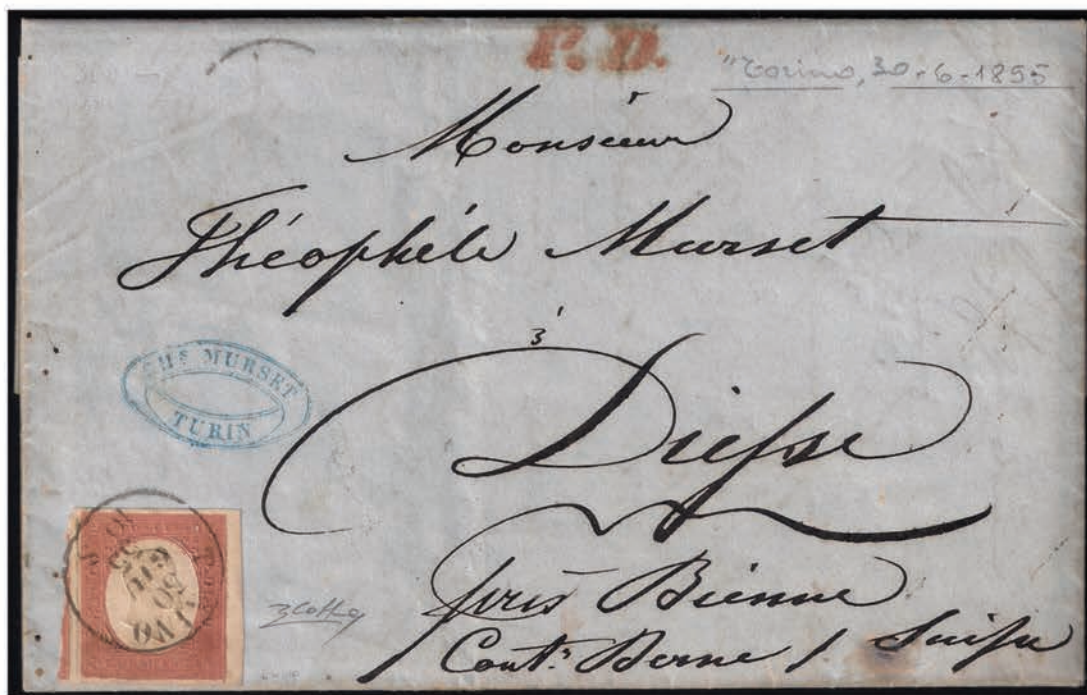 P.D.
"Torino, 30-6-1855
Monsieur
Théophile Murset
3
Diesse
près Bienne
Cant: Berne / Suisse
CHS MURSET
TURIN
30
GIU
55